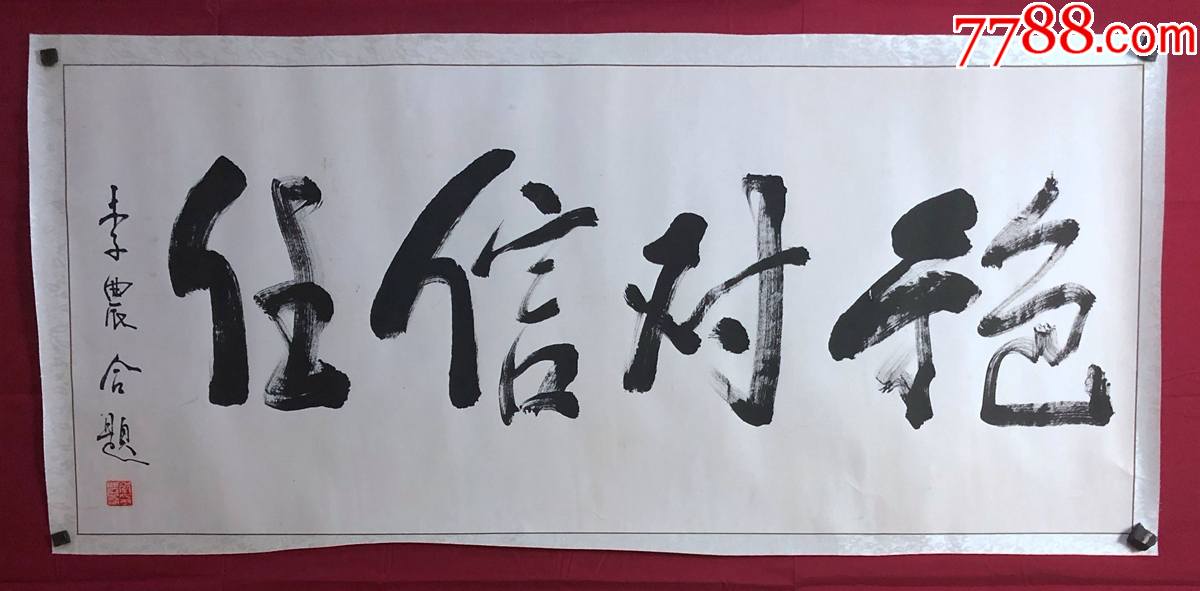 绝对信任
李農合題
7788.com